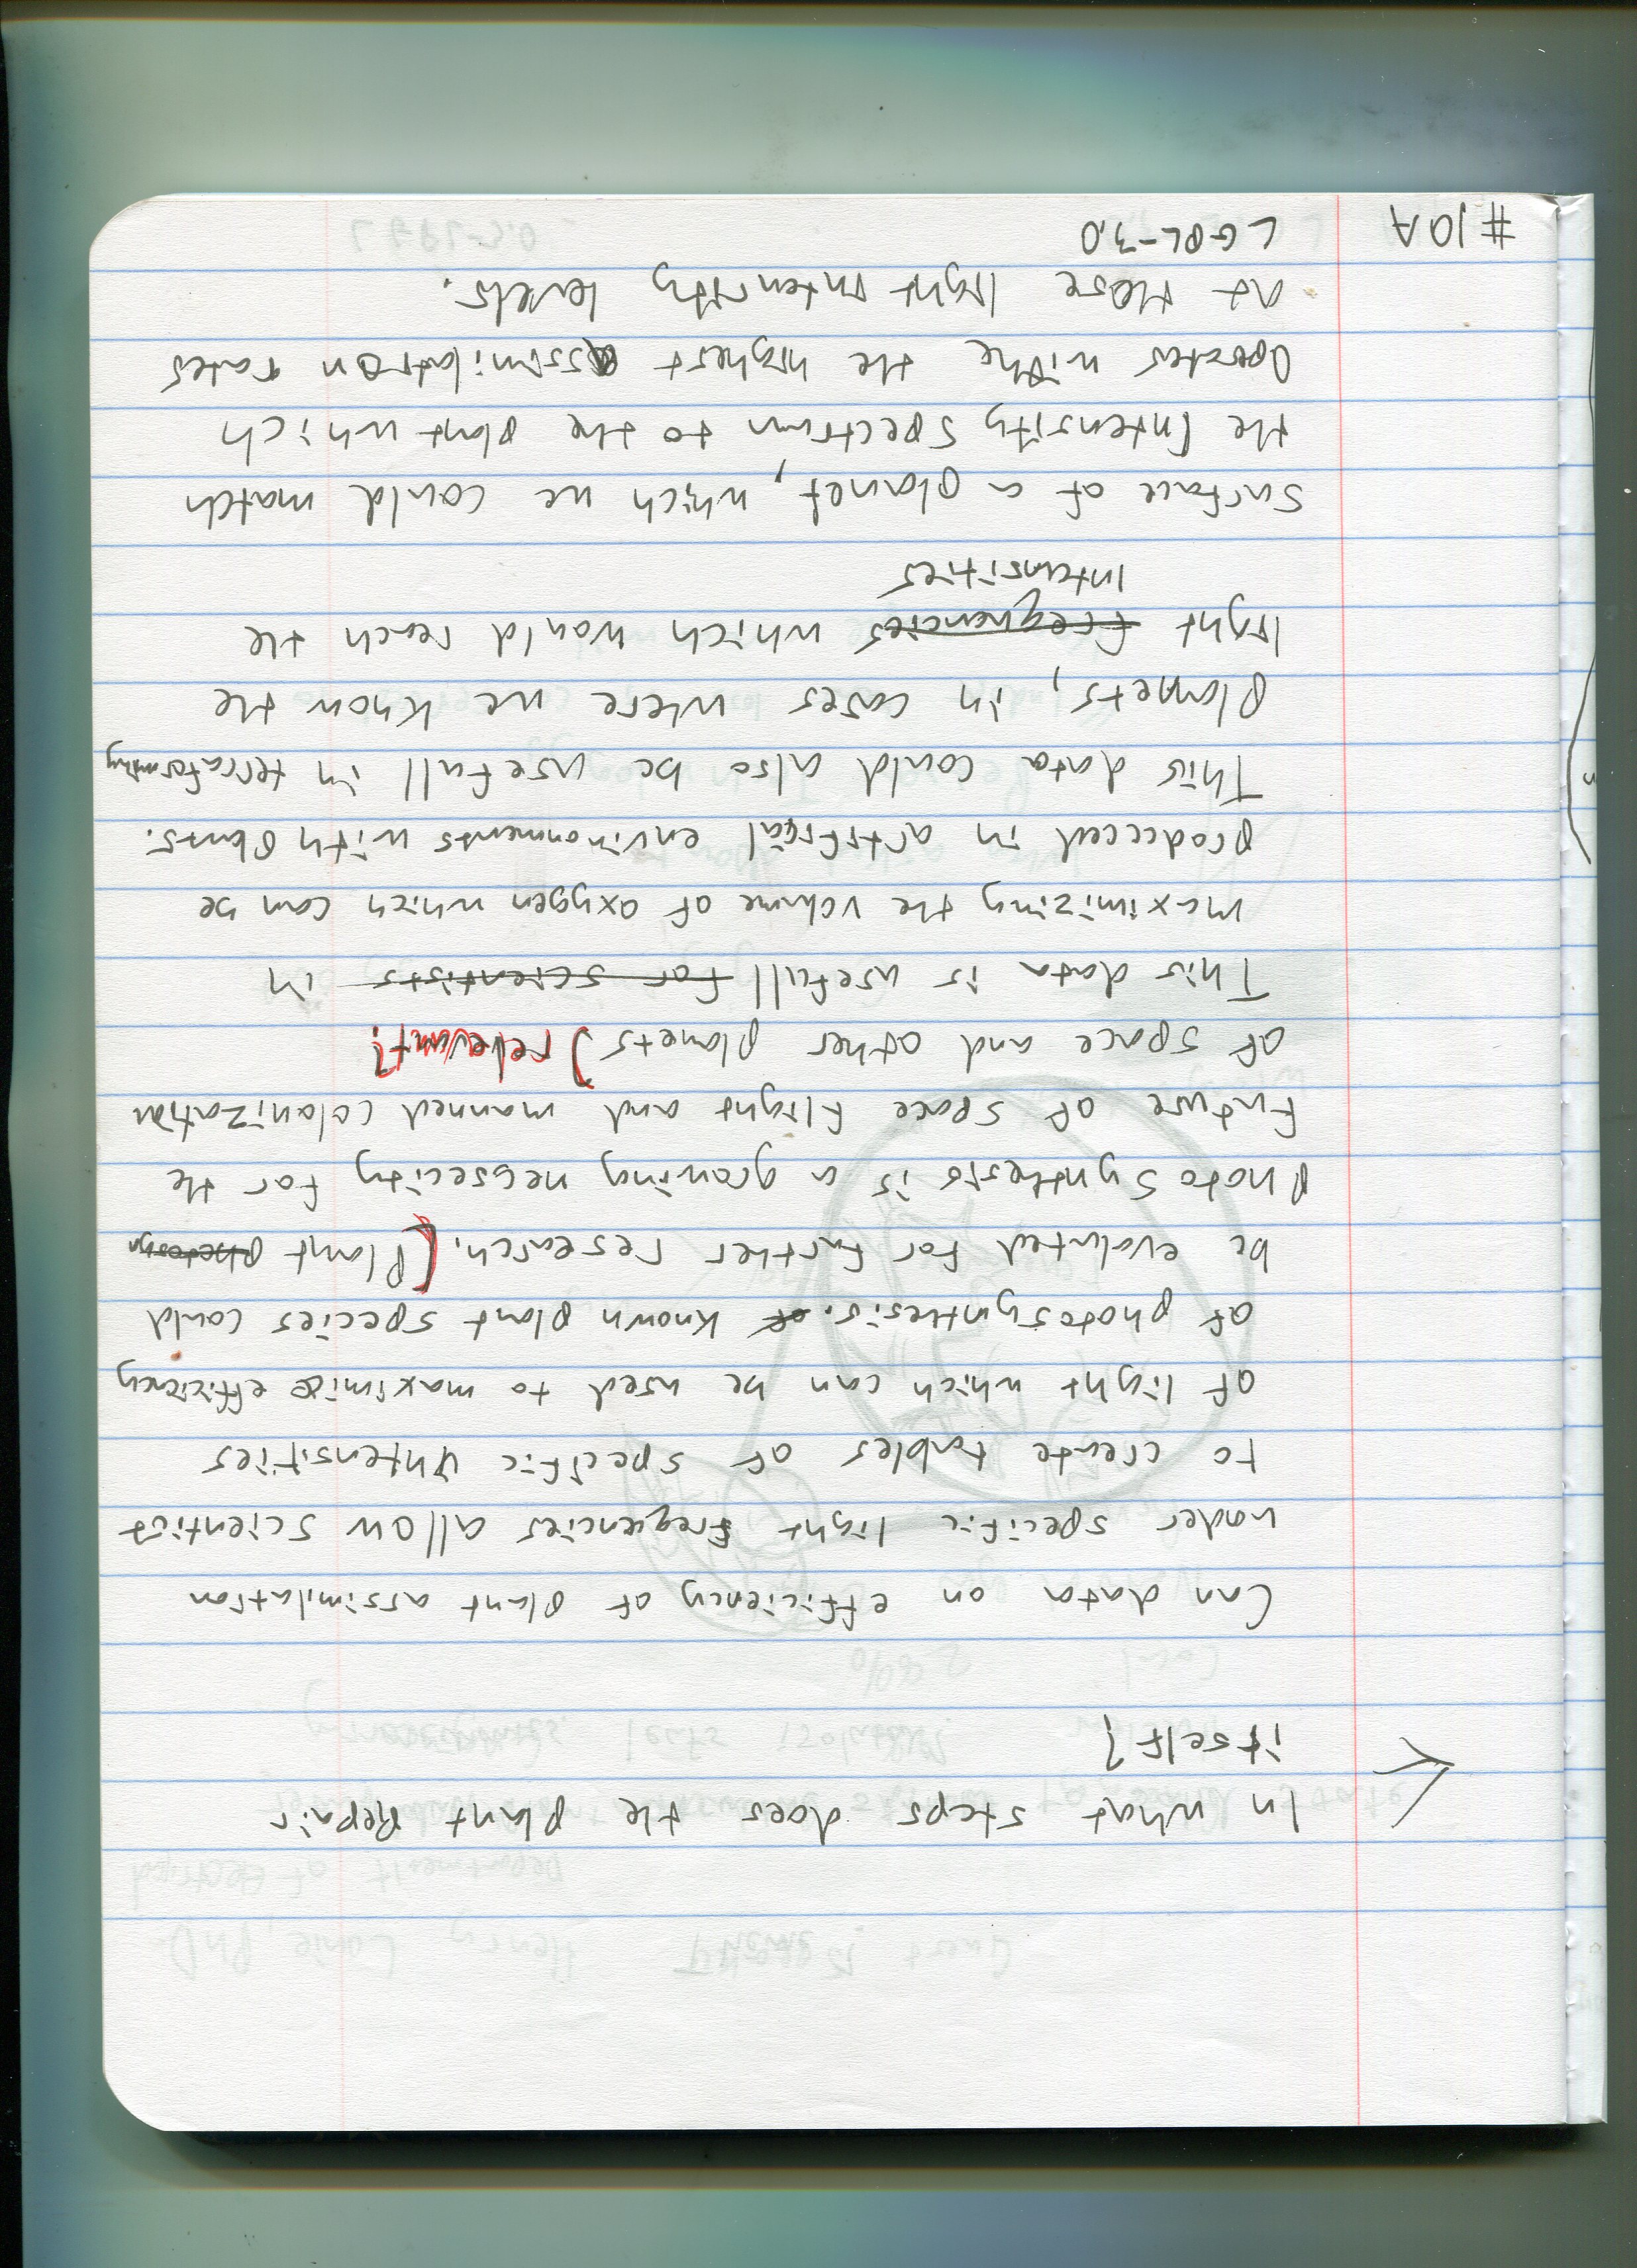 In what steps does the plant Repair
itself?
Can data on efficiency of plant assimilation
under specific light frequencies allow scientist
to create tables of specific intensities
of light which can be used to maximise efficiency
of photosynthesis. of known plant species could
be evaluted for further research. (Plant photosyn
photosynthesis is a growing necsecity for the
future of space flight and manned colonization
of space and other planets) relevant?
This data is usefull for scientists in
maximizing the volume of oxygen which can be
prodecced in artificial environments with plants.
This data could also be usefull in terraforming
plannets, in cases where we know the
light frequencies which would reach the
intensities
surface of a planet, which we could match
the intensity spectrum to the plant which
operates withe the highest assimilation rates
at these light intensity levels.
#10A LGPL-3.0